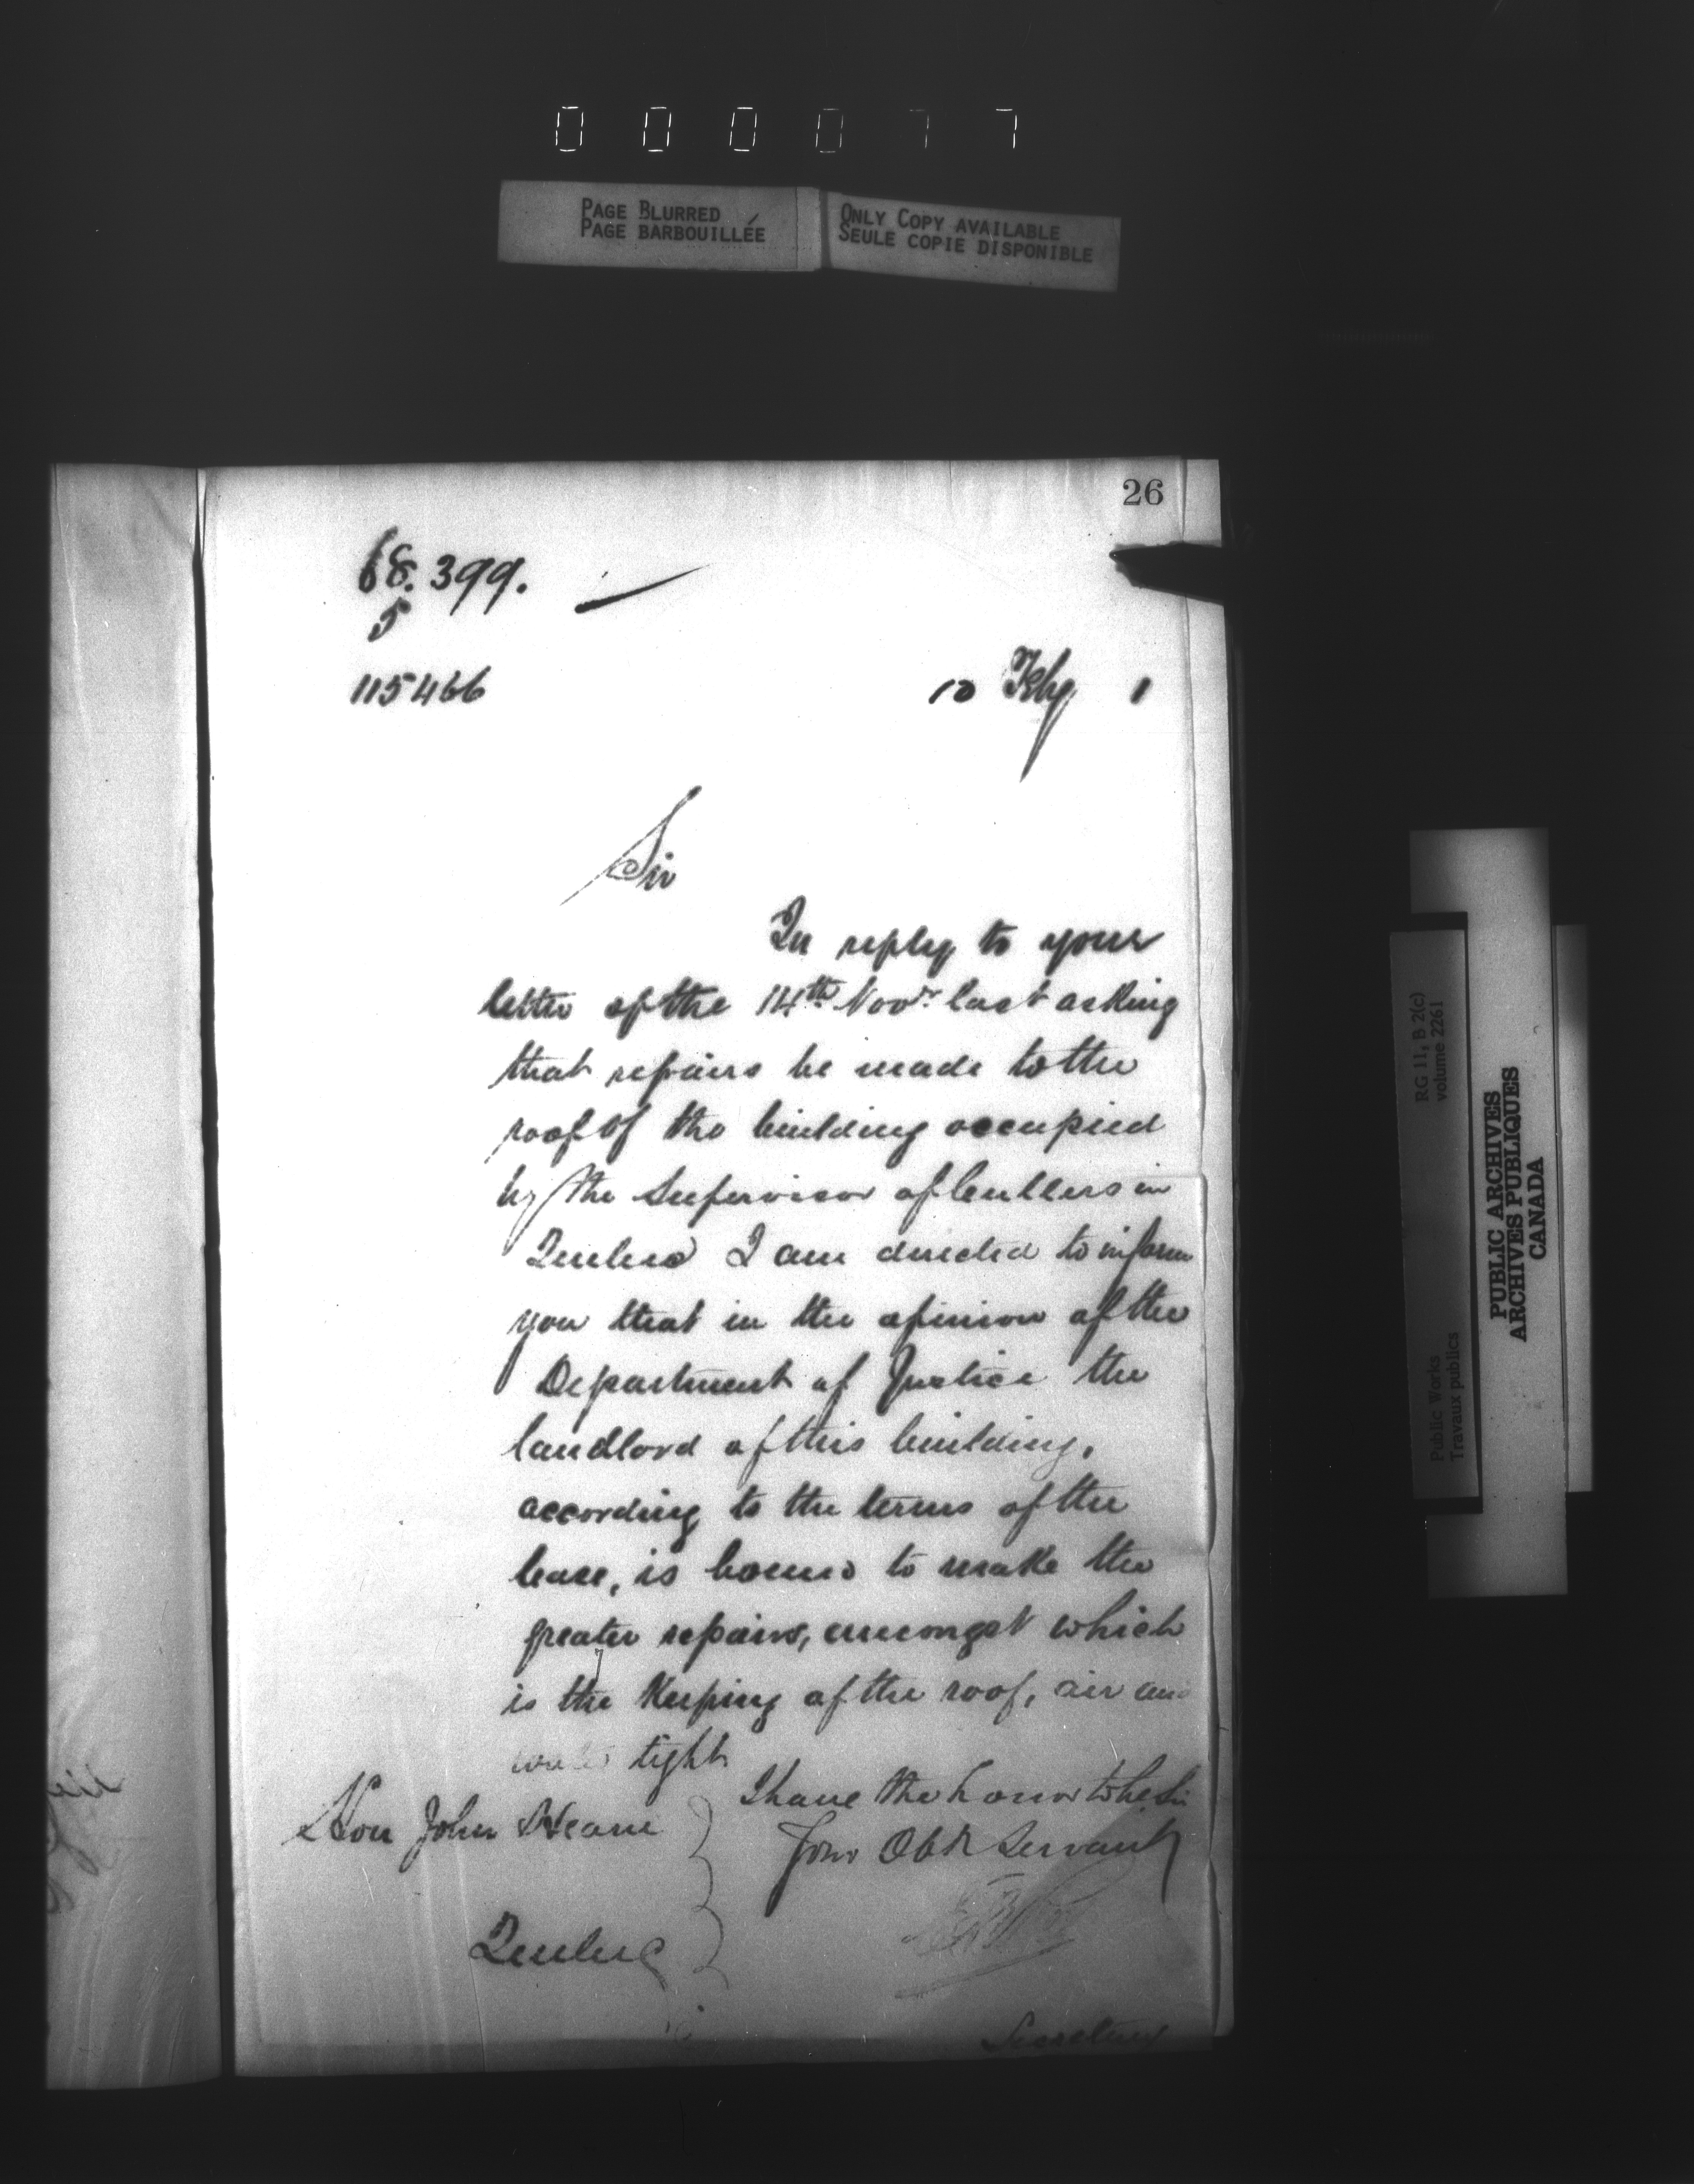 000077
PAGE BLURRED
PAGE BARBOUILLÉE
ONLY COPY AVAILABLE
SEULE COPIE DISPONIBLE
26
68.399.
5
115466
10 Feby 1
Sir
In reply to your
letter of the 14th Novr last asking
that repairs be made to the
roof of the building occupied
by the Supervisor of Cullers in
Quebec I am directed to inform
you that in the opinion of the
Department of Justice the
landlord of this building,
according to the terms of the
lease, is bound to make the
greater repairs, amongst which
is the Keeping of the roof, air and
water tight
I have the honor to be Sir
Your Obt Servant
Hon John Hearn
Quebec
Secretary
RG 11, B 2(c)
volume 2261
Public Works
Travaux publics
PUBLIC ARCHIVES
ARCHIVES PUBLIQUES
CANADA